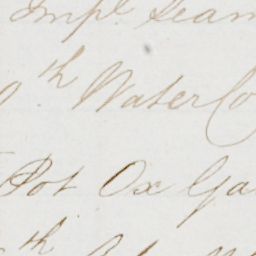 Impl. Sean
0th Water Co
Pot Ox Ga
th